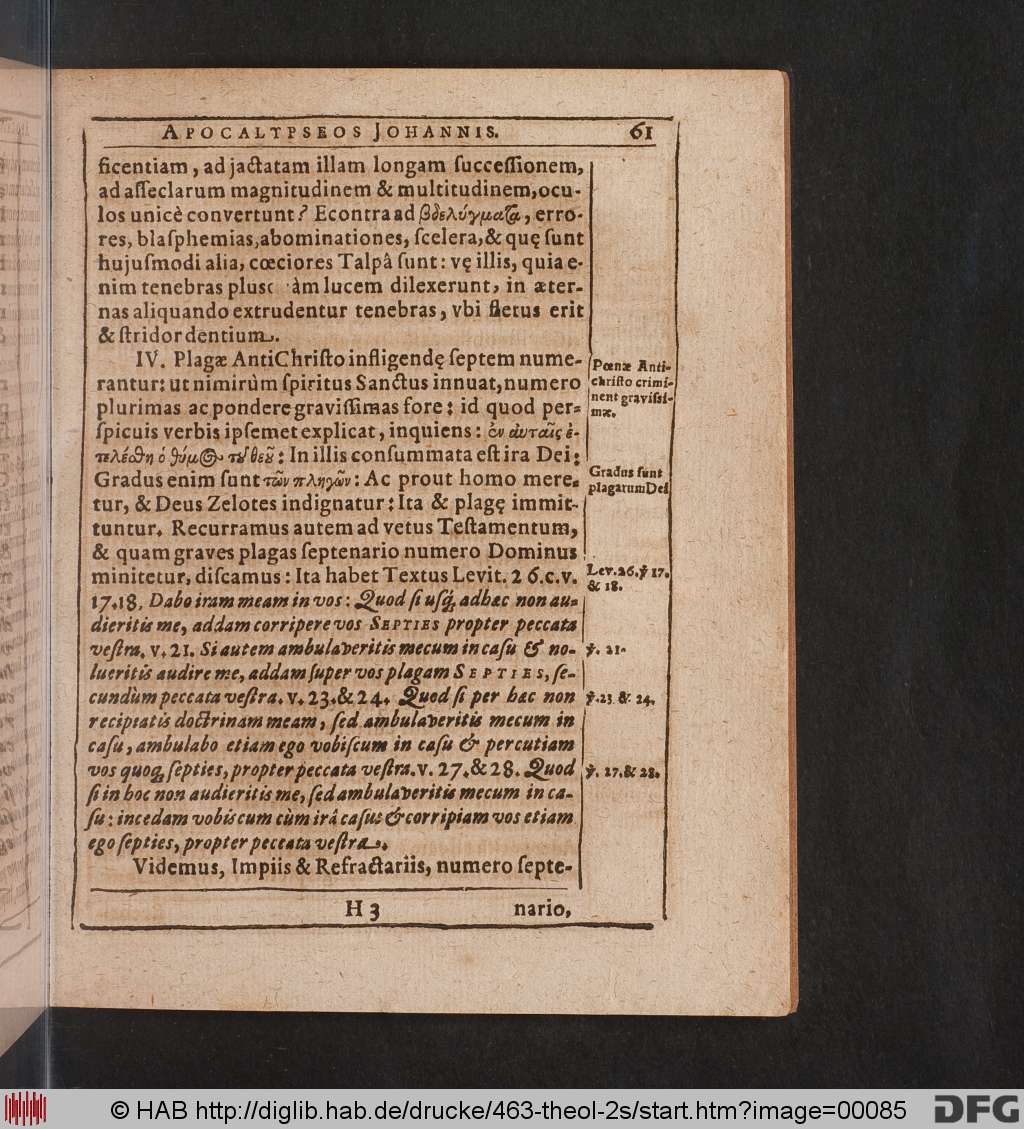 APOCALYPSEOS JOHANNIS. 61
ficentiam, ad jactatam illam longam ſucceſſionem,
ad aſſeclarum magnitudinem & multitudinem, ocu-
los unicè convertunt? Econtra ad βδελύγματα, erro-
res, blaſphemias, abominationes, ſcelera, & quę ſunt
hujuſmodi alia, cœciores Talpâ ſunt: vę illis, quia e-
nim tenebras plus àm lucem dilexerunt, in æter-
nas aliquando extrudentur tenebras, vbi fletus erit
& ſtridor dentium.
IV. Plagæ AntiChriſto infligendę ſeptem nume-
rantur: ut nimirùm ſpiritus Sanctus innuat, numero
plurimas ac pondere graviſſimas fore: id quod per-
ſpicuis verbis ipſemet explicat, inquiens: ἐν αὐταῖς ἐ-
τελέσθη ὁ θύμος τοῦ θεοῦ: In illis conſummata eſt ira Dei:
Gradus enim ſunt τῶν πληγῶν: Ac prout homo mere-
tur, & Deus Zelotes indignatur: Ita & plagę immit-
tuntur. Recurramus autem ad vetus Teſtamentum,
& quam graves plagas ſeptenario numero Dominus
minitetur, diſcamus: Ita habet Textus Levit. 26. c. v.
17. 18. Dabo iram meam in vos: Quod ſi uſq́; adhac non au-
dieritis me, addam corripere vos SEPTIES propter peccata
veſtra. v. 21. Si autem ambulaveritis mecum in caſu & no-
lueritis audire me, addam ſuper vos plagam SEPTIES, ſe-
cundùm peccata veſtra. v. 23. & 24. Quod ſi per hac non
recipiatis doctrinam meam, ſed ambulaveritis mecum in
caſu, ambulabo etiam ego vobiſcum in caſu & percutiam
vos quoq; ſepties, propter peccata veſtra. v. 27. & 28. Quod
ſi in hoc non audieritis me, ſed ambulaveritis mecum in ca-
ſu: incedam vobiscum cùm irâ caſus & corripiam vos etiam
ego ſepties, propter peccata veſtra.
Videmus, Impiis & Refractariis, numero ſepte-
H 3 nario,
Pœnæ Anti-
chriſto crimi-
nent graviſsi-
mæ.
Gradus ſunt
plagarum Dei
Lev. 26. ℣ 17.
& 18.
℣. 21.
℣. 23 & 24.
℣. 27. & 28.
© HAB http://diglib.hab.de/drucke/463-theol-2s/start.htm?image=00085
DFG